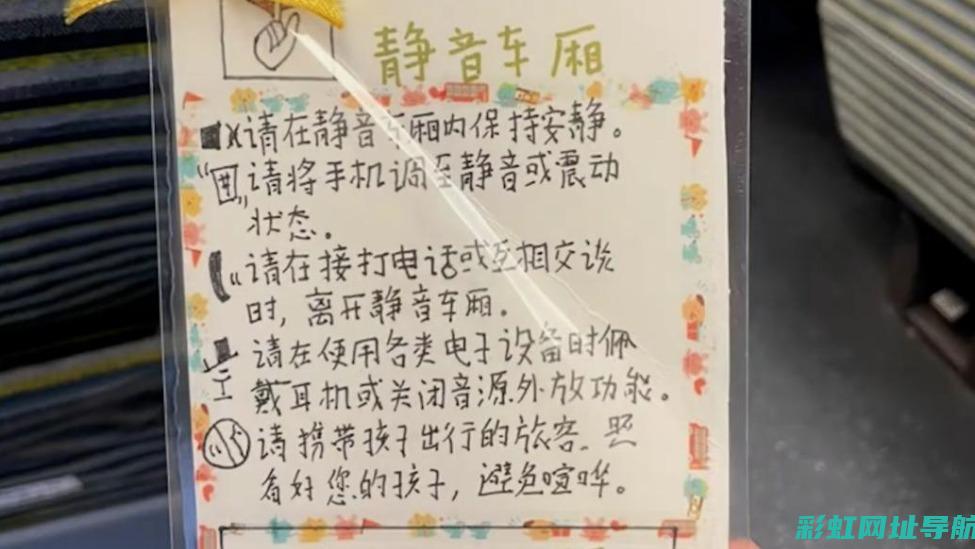 静音车厢
请在静音车厢内保持安静。
请将手机调至静音或震动
状态。
请在接打电话或互相交谈
时，离开静音车厢。
请在使用各类电子设备时佩
戴耳机或关闭音源外放功能。
请携带孩子出行的旅客、照
看好您的孩子，避免喧哗。
彩虹网址导航